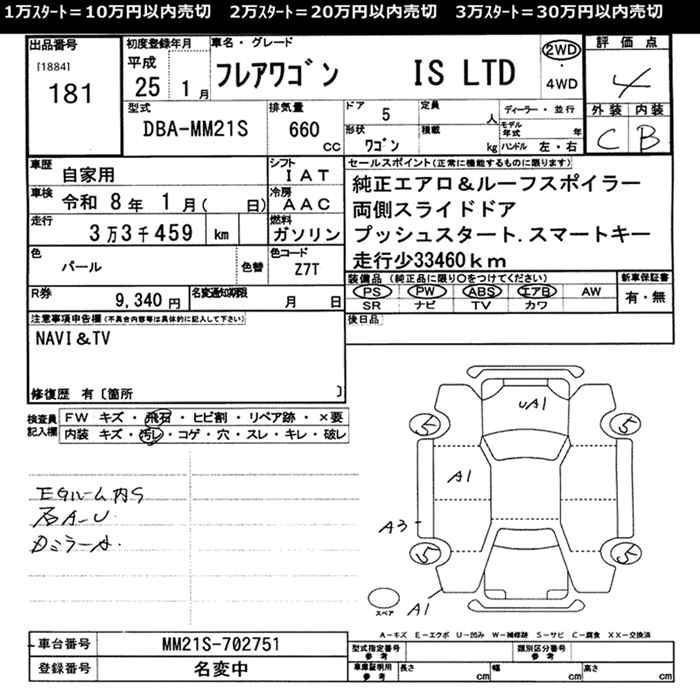 1万ｽﾀｰﾄ＝10万円以内売切　2万ｽﾀｰﾄ＝20万円以内売切　3万ｽﾀｰﾄ＝30万円以内売切
出品番号
[1884]
181
初度登録年月
平成
25 1月
車名・グレード
フレアワゴン IS LTD
2WD
・
4WD
評価点
4
型式
DBA-MM21S
排気量
660
cc
ドア 5
定員 人
形状 ワゴン
積載 kg
ディーラー・並行
モデル年式 年
ハンドル 左・右
外装 内装
C B
車歴 自家用
シフト IAT
車検 令和 8年 1月( 日)
冷房 AAC
走行 3万3千459 km
燃料 ガソリン
色 パール 色替
色コード Z7T
R券 9,340円
名変通知期限 月 日
セールスポイント(正常に機能するものに限ります)
純正エアロ＆ルーフスポイラー
両側スライドドア
プッシュスタート．スマートキー
走行少33460km
装備品 (純正品に限り○をつけてください)
PS PW ABS エアB AW
SR ナビ TV カワ
新車保証書
有・無
後日品
注意事項申告欄 (不具合内容等は具体的に記入して下さい)
NAVI＆TV
修復歴 有〔箇所 〕
検査員記入欄
FW キズ・飛石・ヒビ割・リペア跡・×要
内装 キズ・汚レ・コゲ・穴・スレ・キレ・破レ
Eルーム内S
A-U
ミラーA.
UA1
5 5
A1
A3
5 5
A1
スペア
A−キズ E−エクボ U−凹み W−補修跡 S−サビ C−腐食 XX−交換済
車台番号 MM21S-702751
登録番号 名変中
型式指定番号 参考
類別区分番号 参考
車庫証明用 参考
長さ cm 幅 cm 高さ cm